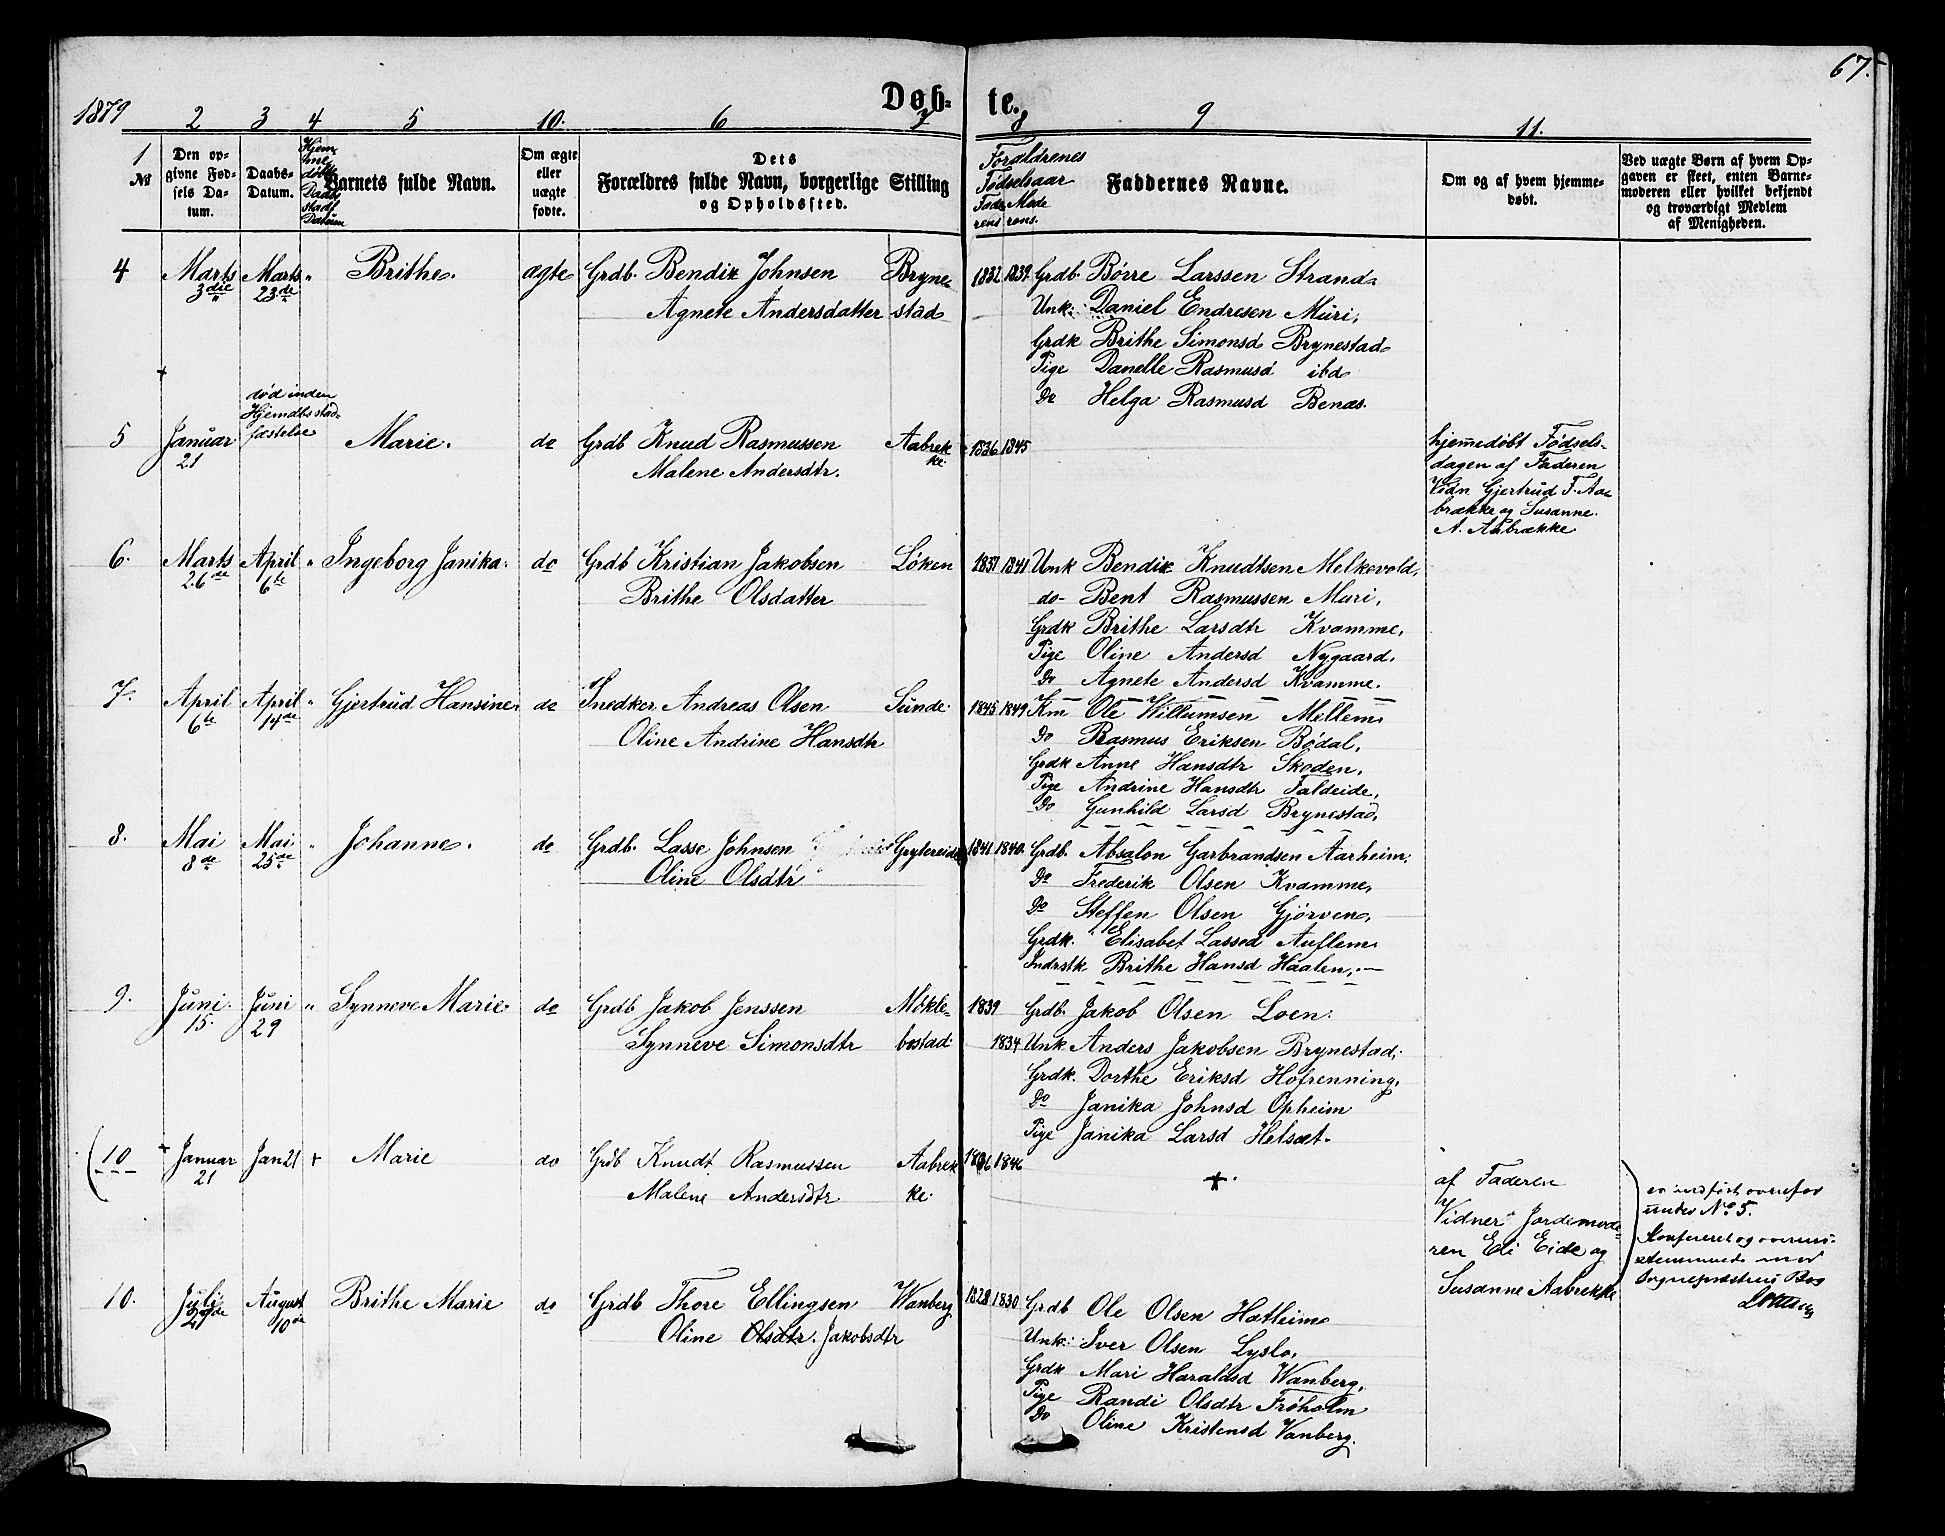 67.
Døb-
te.
1879
2 3 4 5 10. 6 7 8 9 11.
1
№
Den op-
givne Fød-
sels Da-
tum.
Daabs-
Datum.
Hjem-
me
døbt
Daab
stadf
Datum
Barnets fulde Navn.
Om ægte
eller
uægte
fødte.
Dets
Forældres fulde Navn, borgerlige Stilling
og Opholdssted.
Forældrenes
Fødselsaar
Fade Mode
rens rens.
Faddernes Navne.
Om og af hvem hjemme-
døbt.
Ved uægte Børn af hvem Op-
gaven er skeet, enten Barne-
moderen eller hvilket bekjendt
og troværdigt Medlem
af Menigheden.
4 Marts Marts " Brithe. ægte Grdb. Bendik Johnsen Bryne- 1832 1839 Grdb Børre Larssen Strand
3die 23de Agnete Andersdatter stad Unk: Daniel Endresen Muri,
Grdk Brithe Simonsd Brynestad
Pige Danelle Rasmusd ibd
Do Helga Rasmusd Benæs.
+ død inden
Hjemdbs stad-
fæstelse
5 Januar Marie. do Grdb Knud Rasmussen Aabrek 1836 1845 hjemmedøbt Fødsels-
21 Malene Andersdtr. ke. dagen af Faderen
Vidn Gjertrud T. Aa-
brække og Susanne.
A. Aabrække
6. Marts April " Ingeborg Janika. do Grdb Kristian Jakobsen Løken 1831 1841 Unk Bendik Knudtsen Melkevold,
26de 6te Brithe Olsdatter do- Bent Rasmussen Muri,
Grdk Brithe Larsdtr Kvamme,
Pige Oline Andersd Nygaard.
Do Agnete Andersd Kvamme.
7. April April " Gjertrud Hansine. do Snedker Andreas Olsen Sunde. 1845 1849 Km Ole Willumsen Mellem
6te 14de Oline Andrine Hansdtr Do Rasmus Eriksen Bødal,
Grdk Anne Hansdtr Skoden,
Pige Andrine Hansdtr Faldeide,
Do Gunhild Larsd Brynestad,
8. Mai Mai " Johanne. do Grdb. Lasse Johnsen Grytereide 1841 1840 Grdb. Absalon Garbrandsen Aarheim;
8de 25de Oline Olsdtr Do Frederik Olsen Kvamme,
Do Steffen Olsen Gjørven,
Grdk. Elisabet Lassed Auflem
Indrstk Brithe Hansd Haalen,
9. Juni Juni " Synneve Marie do Grdb Jakob Jenssen Møkle- 1839 Grdb. Jakob Olsen Loen:
15. 29 Synneve Simonsdtr bostad 1834 Unk Anders Jakobsen Brynestad;
Grdk. Dorthe Eriksd Hofrenning,
Do Janika Johnsd Opheim
Pige Janika Larsd Helsæt.
(10 + Januar Jan 21 + Marie do Grdb Knudt Rasmussen Aabrek 1836 1846 + af Faderen
21 Malene Andersdtr ke. Vidner Jordemode-
ren Eli Eide og
Susanne Aabrekke
er indført ovenfor
under No 5.
Konfereret og overens-
stemmende med
Sognepræstens Bog
10. Juli August Brithe Marie do Grdb Thore Ellingsen Wanberg 1828 1830 Grdb Ole Olsen Hatleim
10de Oline Olsdtr. Jakobsdtr Unk: Iver Olsen Lyslo,
Grdk Mari Haraldsd Wanberg,
Pige Randi Olsdtr Frøholm
Do Oline Kristensd Vanberg.